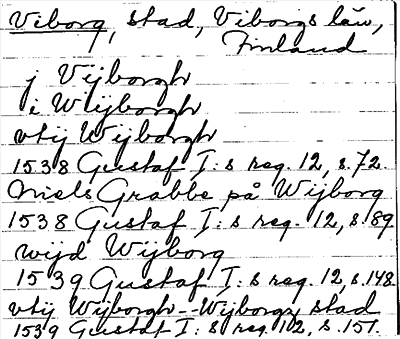 Viborg, stad, Viborgs län,
Finland
j Vijborgh
i Wijborgh
vtij Wijborgh
1538 Gustaf I:s reg. 12, s. 72.
Niels Grabbe på Wijborg
1538 Gustaf I:s reg. 12, s. 189.
wijd Wijborg
1539 Gustaf I:s reg. 12, s. 148.
vtij Wijborgh--Wijborgz stad
1539 Gustaf I:s reg. 12, s. 151.